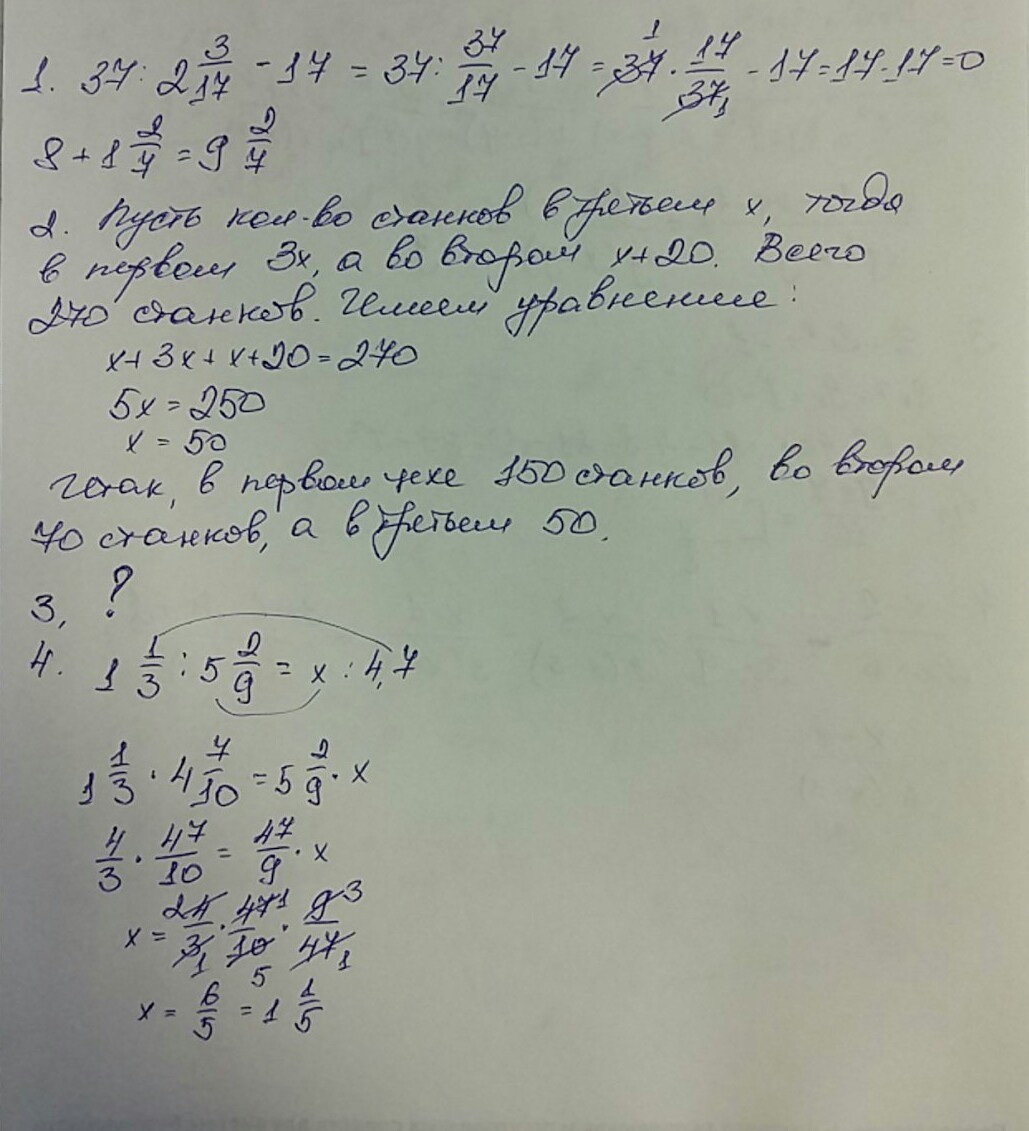 1. 37 : 2 3/17 - 17 = 37 : 37/17 - 17 = 37 1 · 17/37 1 - 17 = 17-17=0
8 + 1 2/7 = 9 2/7
2. Пусть кол-во станков в третьем x, тогда
в первом 3x, а во втором x+20. Всего
270 станков. Имеем уравнение:
x+3x+x+20=270
5x = 250
x = 50
Итак, в первом цехе 150 станков, во втором
70 станков, а в третьем 50.
3, ?
4. 1 1/3 : 5 2/9 = x : 4,7
1 1/3 · 4 7/10 = 5 2/9 · x
4/3 · 47/10 = 47/9 · x
x = 2 4/3 1 · 47 1/10 5 · 9 3/47 1
x = 6/5 = 1 1/5